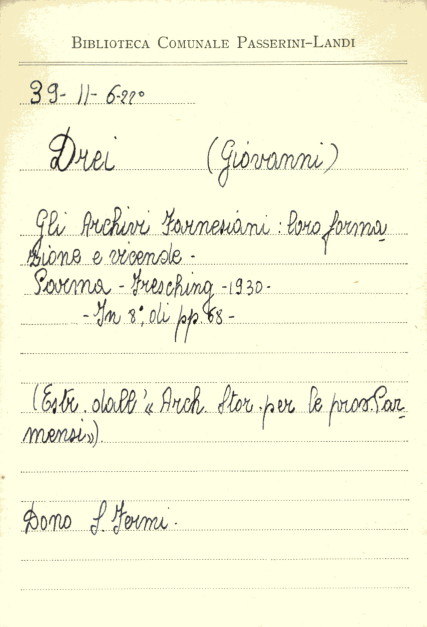 BIBLIOTECA COMUNALE PASSERINI-LANDI
39- 11- 6-22°
Drei (Giovanni)
Gli Archivi Farnesiani: loro forma
zione e vicende -
Parma - Fresching -1930-
- In 8°, di pp. 68 -
(Estr. dall'« Arch. Stor. per le prov. Par
mensi»).
Dono S. Fermi.